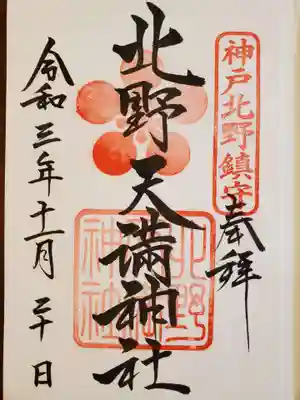 神戸北野鎮守
奉拝
北野天満神社
北野
神社
令和三年十一月二十日